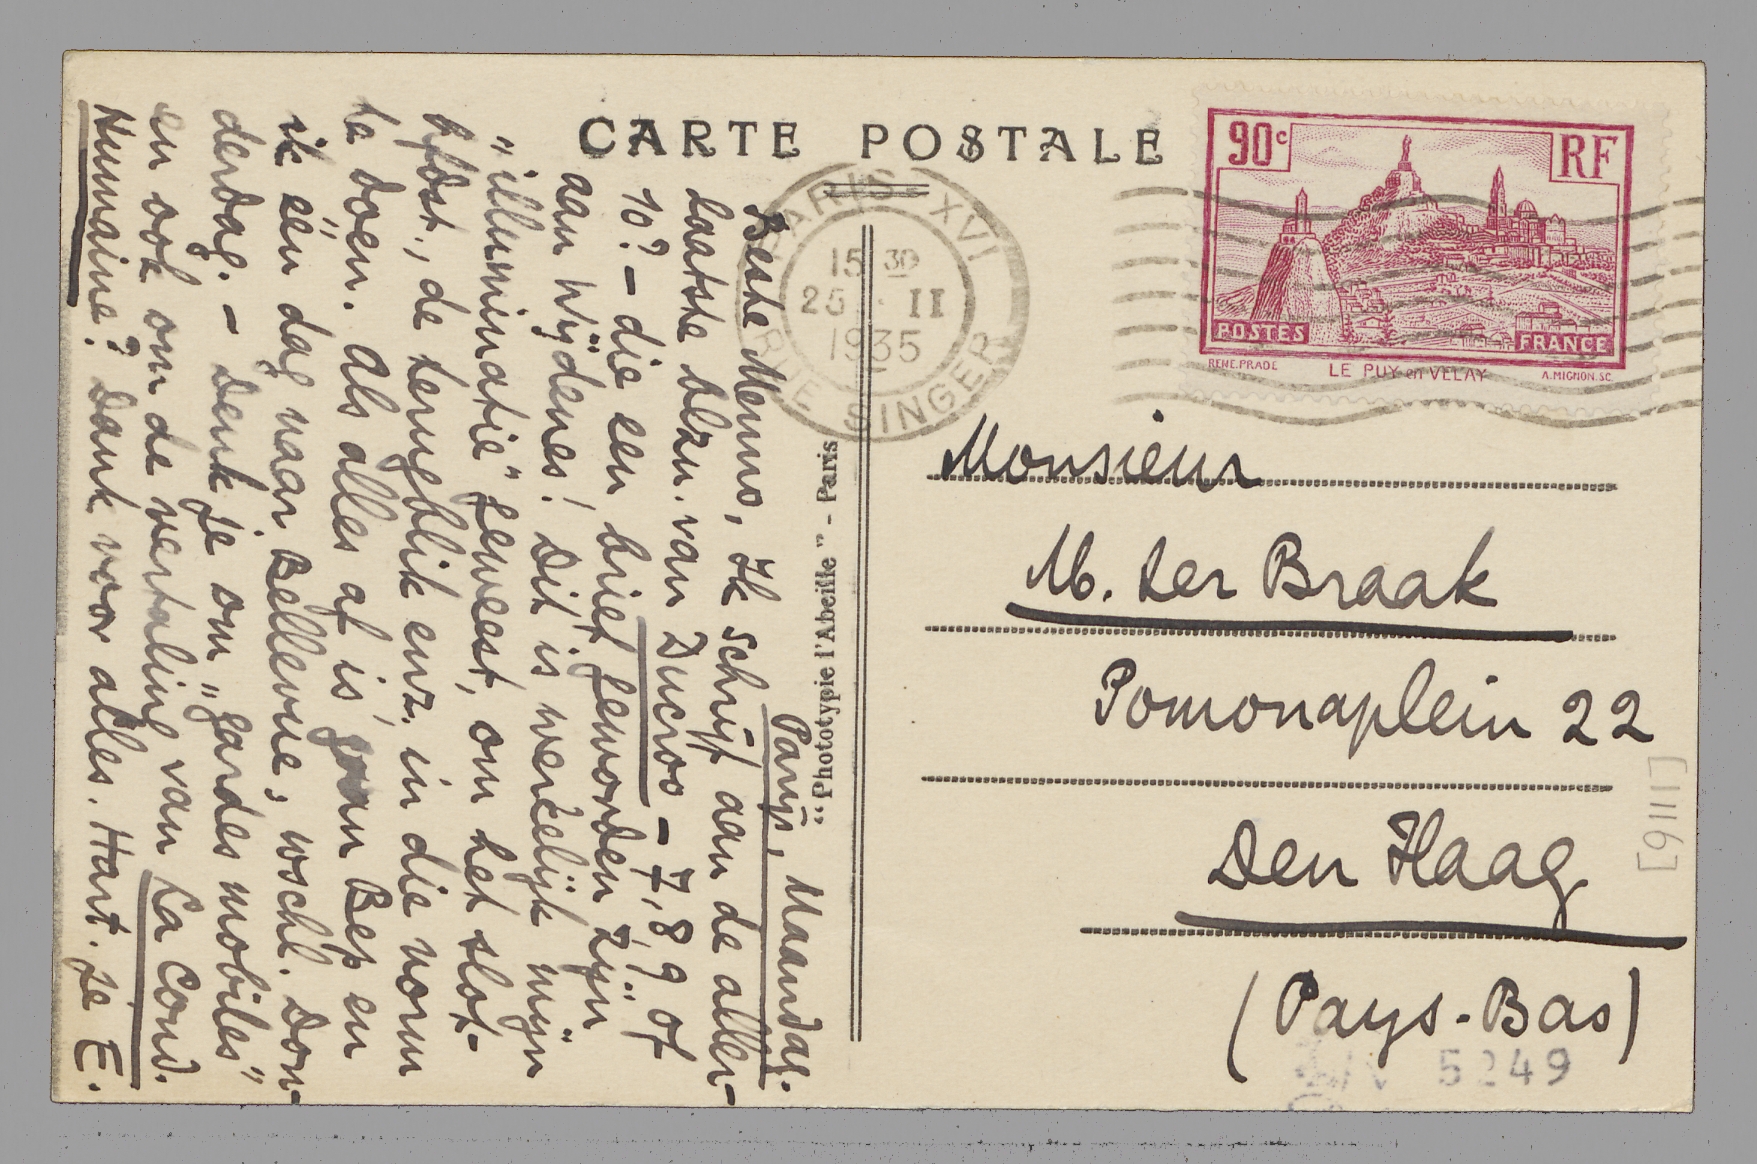 CARTE POSTALE
90c
RF
POSTES
FRANCE
RENE.PRADE
LE PUY en VELAY
A.MIGNON.SC
PARIS XVI
15 30
25 II
1935
RUE SINGER
"Phototypie l'Abeille" - Paris
Parijs, Maandag.
Beste Menno, Ik schrijf aan de aller-
laatste blzn. van Ducroo - 7, 8, 9 of
10? - die een brief geworden zijn
aan Wijdenes! Dit is werkelijk mijn
"illuminatie" geweest, om het slot-
hfdst., de terugblik enz. in die vorm
te doen. Als alles af is, gaan Bep en
ik één dag naar Bellevue, wschl. Don-
derdag. - Denk je om "gardes mobiles"
en ook om de vertaling van La Cond.
Humaine? Dank voor alles. Hart. je E.
Monsieur
M. ter Braak
Pomonaplein 22
Den Haag
(Pays-Bas)
[9111]
5249